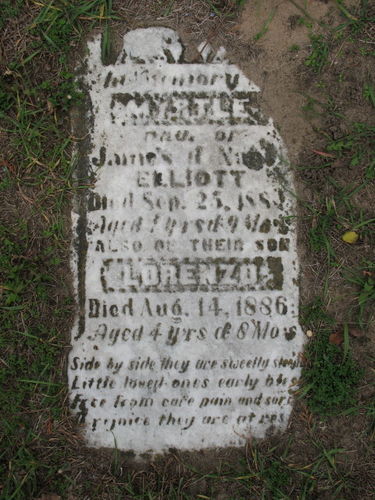 In Memory
MYRTLE
DAU. OF
James &
ELLIOTT
Died Sep. 25, 188
Aged 1 yrs & 9 Mos
ALSO OF THEIR SON
LORENZO.
Died Aug. 14, 1886
Aged 4 yrs & 8 Mos
Side by side they are sweetly
Little loved ones early
Free from care pain and
rejoice they are at